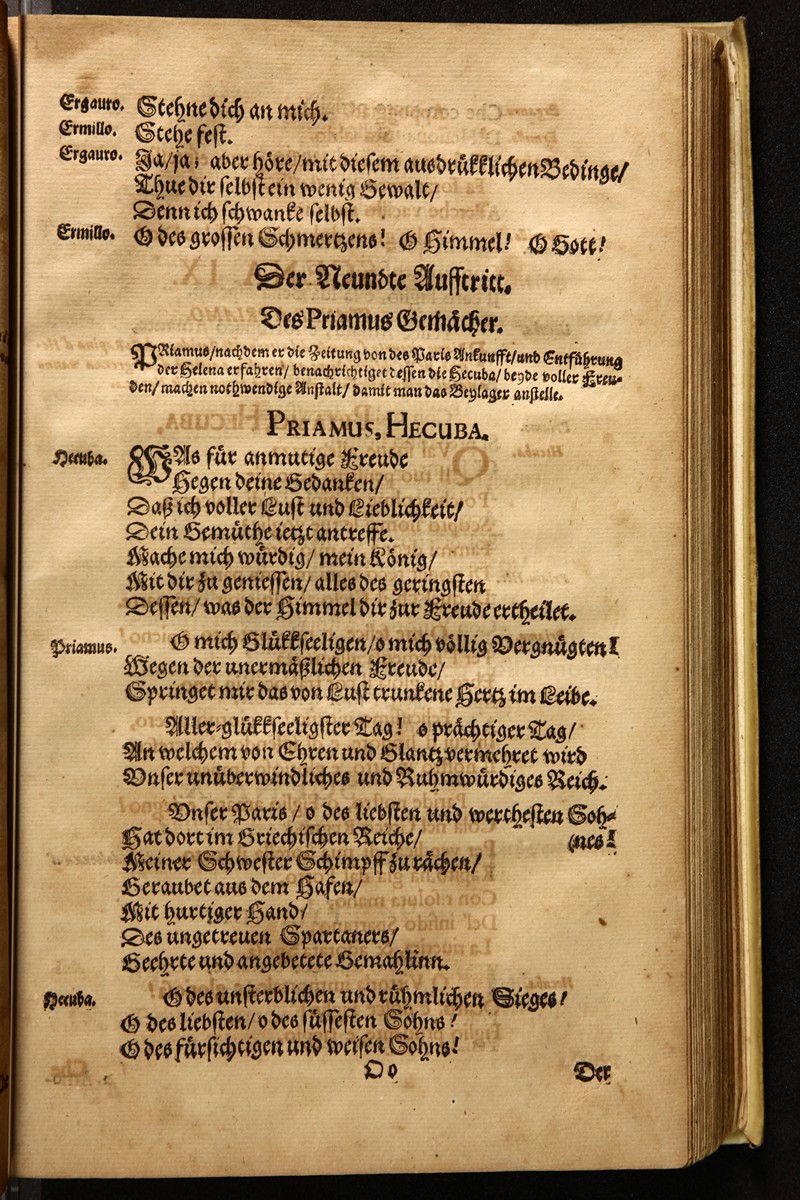 Ergauro. Stehne dich an mich.
Ermillo. Stehe fest.
Ergauro. Ja/ja/ aber höre/mit diesem ausdrükklichen Bedinge/
Thue dir selbst ein wenig Gewalt/
Denn ich schwanke selbst.
Ermillo. O des grossen Schmertzens! O Himmel! O Gott!
Der Neundte Aufftritt.
Des Priamus Gemächer.
PRiamus/nachdem er die Zeitung von des Paris Ankunfft/und Entführung
der Helena erfahren/ benachrichtiget dessen die Hecuba/ beyde voller Freu-
den/ machen nothwendige Anstalt/ damit man das Beylager anstelle.
PRIAMUS, HECUBA.
Hecuba. WAs für anmutige Freude
Hegen deine Gedanken/
Daß ich voller Lust und Lieblichkeit/
Dein Gemüthe ietzt antreffe.
Mache mich würdig/ mein König/
Mit dir zu geniessen/ alles des geringsten
Dessen/ was der Himmel dir zur Freude ertheilet.
Priamus. O mich Glükkseeligen/o mich völlig Vergnügten!
Wegen der unermäßlichen Freude/
Springet mir das von Lust trunkene Hertz im Leibe.
Aller-glükkseeligster Tag! o prächtiger Tag/
An welchem von Ehren und Glantz vermehret wird
Vnser unüberwindliches und Ruhmwürdiges Reich.
Vnser Paris / o des liebsten und werthesten Soh-
Hat dort im Griechischen Reiche/ (nes!
Meiner Schwester Schimpff zu rächen/
Geraubet aus dem Hafen/
Mit hurtiger Hand/
Des ungetreuen Spartaners/
Geehrte und angebetete Gemahlinn.
Hecuba. O des unsterblichen und rühmlichen Sieges!
O des liebsten/ o des süssesten Sohns!
O des fürsichtigen und weisen Sohns!
Do Der